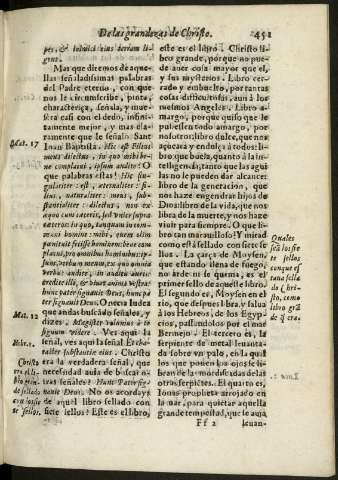 De las grandezas de Christo. 451
pes, & lubiica eius terram li-
gent.
Mas que diremos de aque-
llas señaladissimas palabras
del Padre eterno, con que
nos le circunscribe, pinta,
characteriça, señala, y mue-
stra casi con el dedo, infini-
tamente mejor, y mas cla-
ramente que le señalo Sant
Iuan Baptista. Hic est Filius
meus dilectus, in quo mihi be-
ne complacui, ipsum audite: O
que palabras estas! Hic sin-
gulariter: est, aternaliter: fi-
lius, naturaliter: meus, sub-
stantialiter: dilectus, non ex
aquo cum cæteris, sed
tratores: in quo, tanquam in com-
hominem: bene com-
placui, pro omnibus hominibus:
verbum meum, per quo omnia
verba: audite, in auditu auris:
pater signauit Deus, hunc pa-
ter signauit Deus. O recta Iudea
que andas buscãdo señales, y
dizes. Magister volumus à te
signum videre. Ves aqui la
señal, ves aqui la señal
substantiæ eius. Christo
era la verdadera señal, que
necessidad auia de buscar o-
tras señales? Hunc Pater sig-
nauit Deus. No os acordays
de aquel libro sellado con
siete sellos? Este es el libro,
Mat. 17
Mat. 12
Hebr. 1.
Christo
sellado
con siete
sellos.
este es el libro. Christo li-
bro grande, porque no pue-
de auer cosa mayor que el,
y sus mysterios. Libro cer-
rado y embuelto, porque no
se dexa entender, aun de los
mismos Angeles. Libro a-
margo, porque quiso que le
pusiessen todo amargo, por
nosotros: libro dulce, que nos
açucara y endulça a todos: li-
bro que buela, quanto à la in-
telligencia; tanto que las agui-
las no le pueden dar alcance:
libro de la generacion, que
haze engendrar hijos de
Dios: libro de la vida, que nos
libra de la muerte, y nos haze
viuir para siempre. O que li-
bro tan marauilloso! Y mirad
como està sellado con siete se-
llos. La çarça de Moysen,
que estando llena de fuego,
no arde ni se quema, es el
primer sello de aqueste libro.
El segundo es, Moysen en el
rio, que despues libra y salua
à los Hebreos, de los Egyp-
cios, passandolos por el mar
Bermejo. El tercero es, la
serpiente de metal leuanta-
da sobre vn palo, en la qual
los que ponen los ojos se li-
bran de las mordeduras de las
otras serpientes. El quarto es,
Ionas propheta arrojado en
la mar, para quietar aquella
grande tempestad, que se auia
Quales
seã los sie
te sellos
conque es
tana sella
do Chri-
sto, como
libro grã
de q̃ era.
Ff 2 leuan-